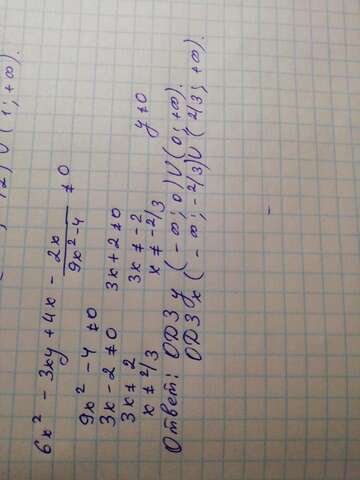 /2) ∪ (1; +∞).
6x² - 3xy + 4x - 2x/(9x² - 4) ≠ 0
9x² - 4 ≠ 0
3x - 2 ≠ 0 3x + 2 ≠ 0 y ≠ 0
3x ≠ 2 3x ≠ -2
x ≠ 2/3 x ≠ -2/3
Ответ: ОДЗ y (-∞; 0) ∪ (0; +∞).
ОДЗ x (-∞; -2/3) ∪ (2/3; +∞).